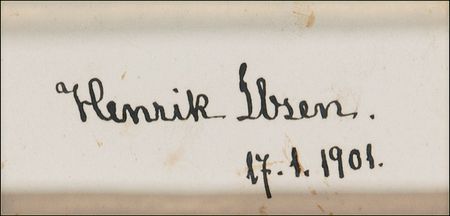 Henrik Ibsen.
17.1.1901.